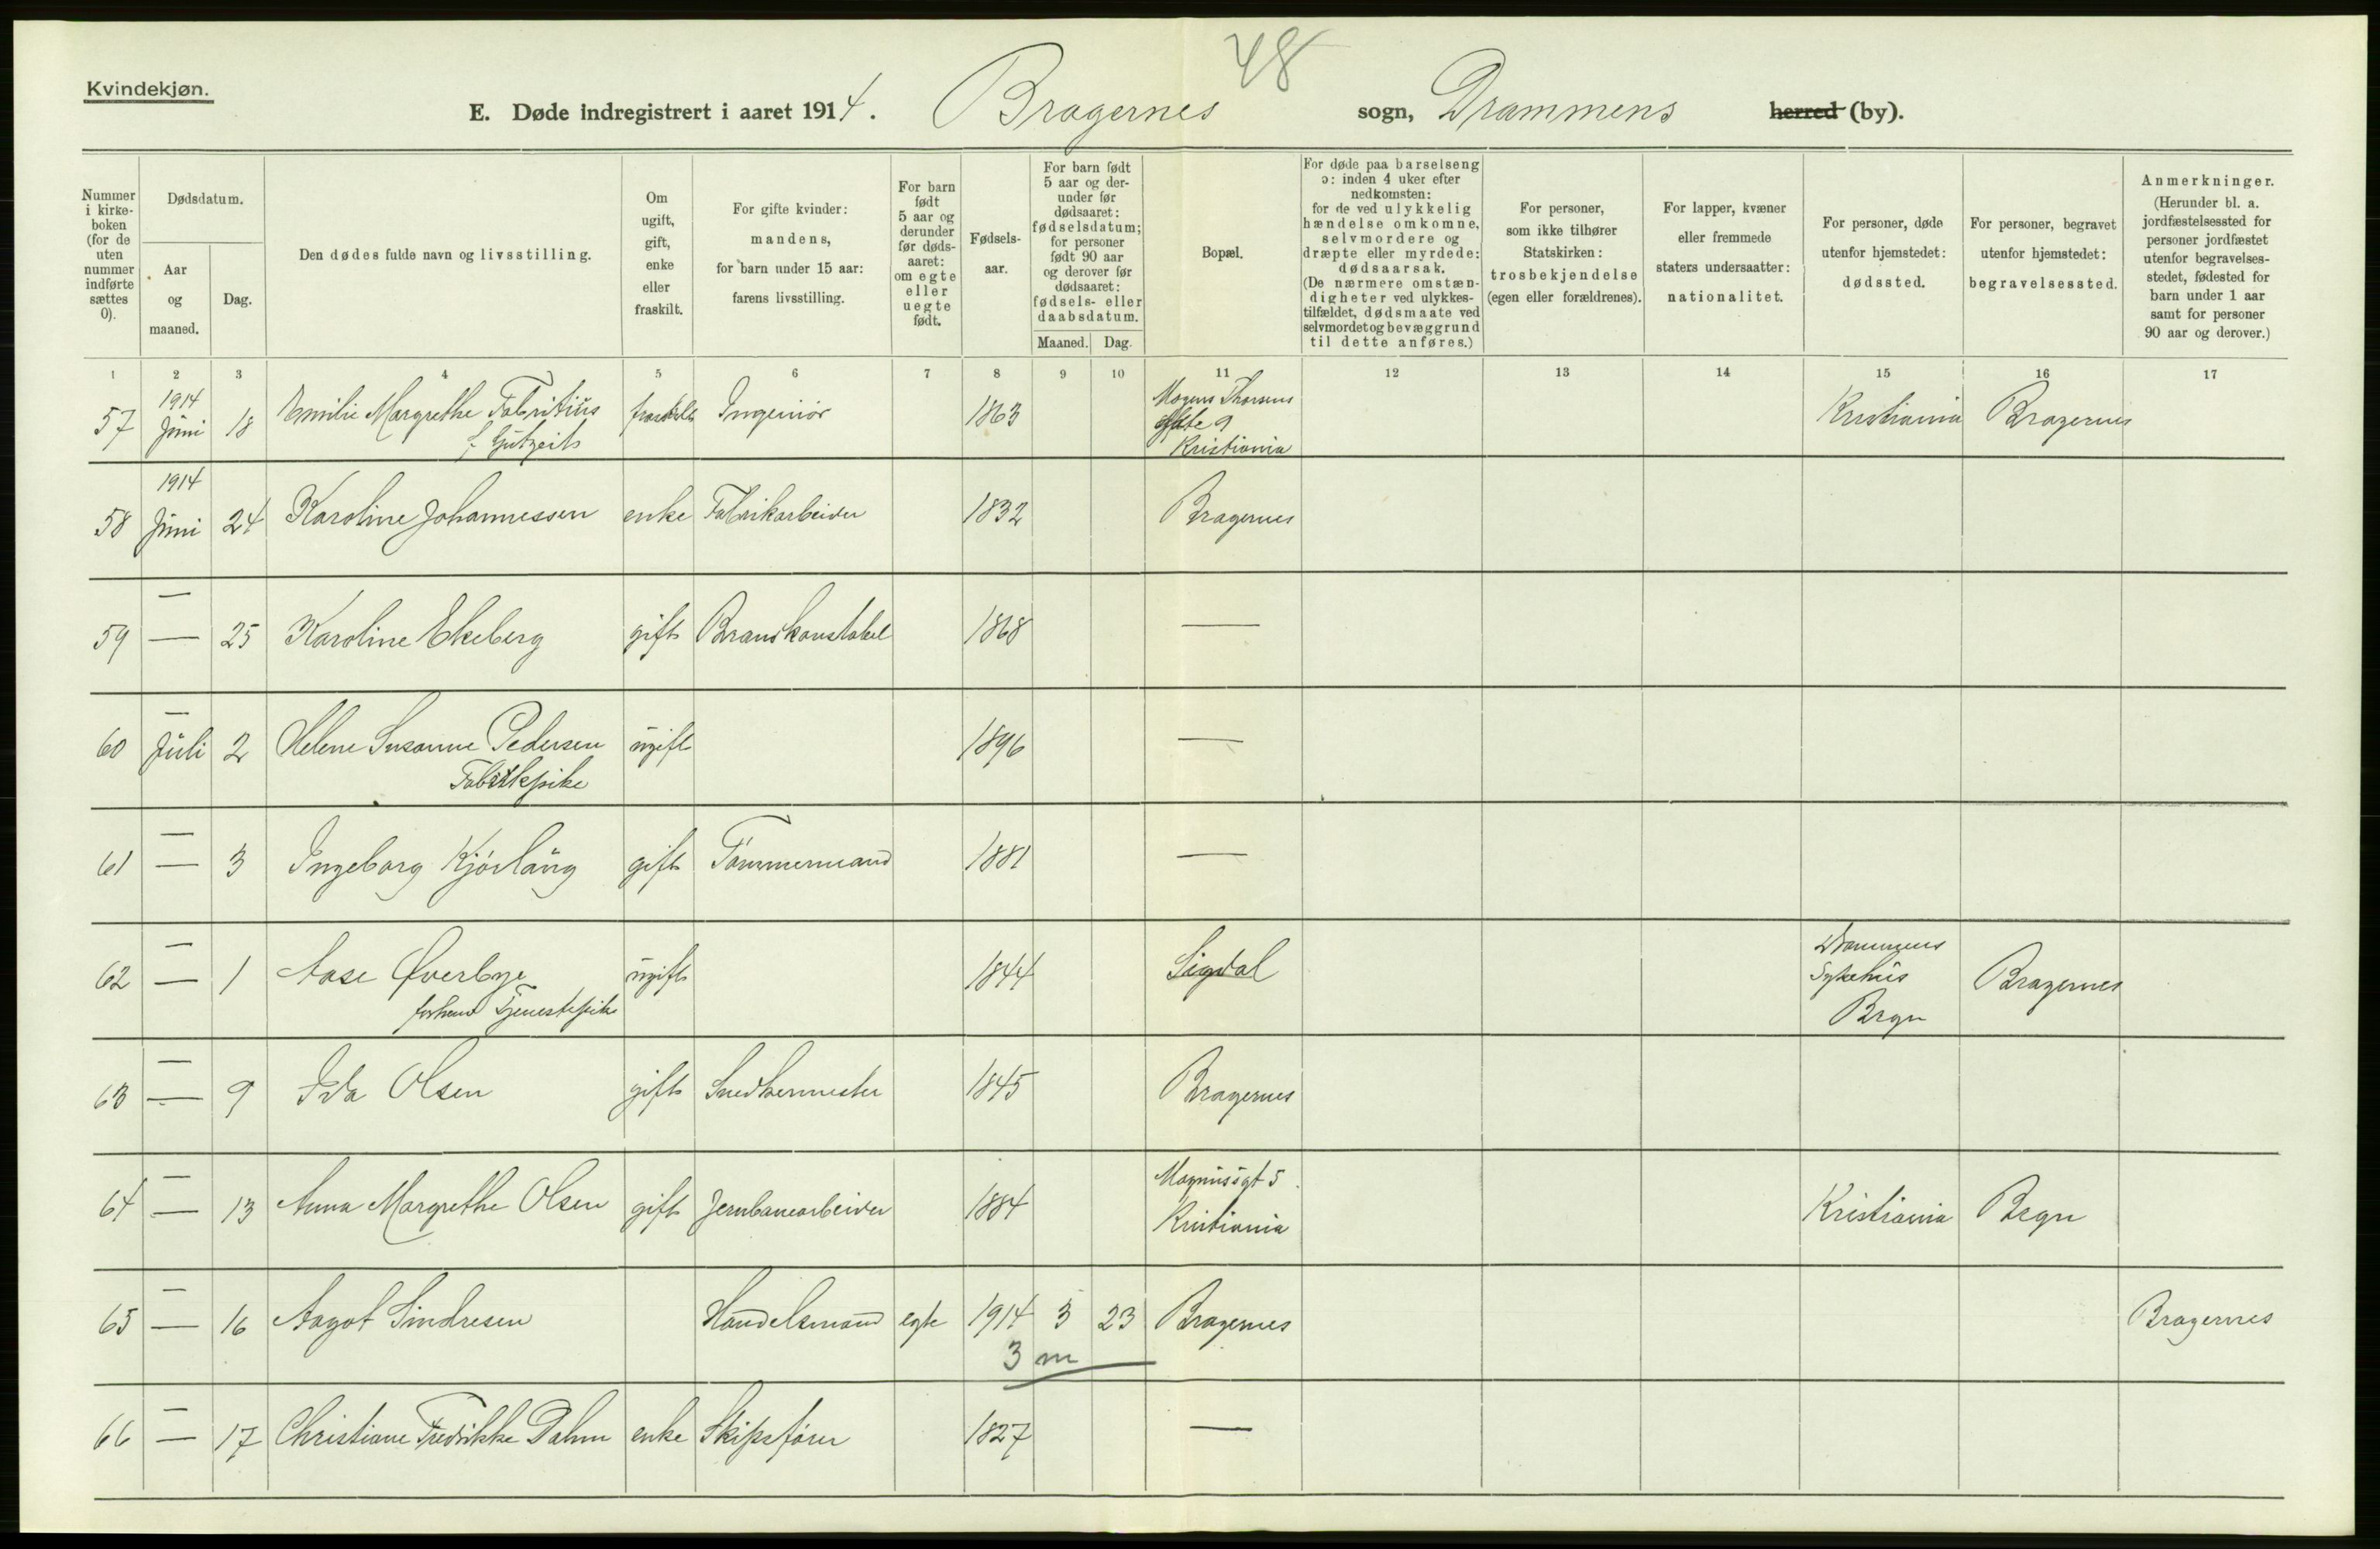 48
Kvindekjøn.
E. Døde indregistrert i aaret 1914. Bragernes sogn, Drammens herred (by).
Nummer i kirke-boken (for de uten nummer indførte sættes 0).
Dødsdatum.
Aar og maaned.
Dag.
Den dødes fulde navn og livsstilling.
Om ugift, gift, enke eller fraskilt.
For gifte kvinder: mandens, for barn under 15 aar: farens livsstilling.
For barn født 5 aar og derunder før døds-aaret: om egte eller uegte født.
Fødsels-aar.
For barn født 5 aar og der-under før dødsaaret: fødselsdatum; for personer født 90 aar og derover før dødsaaret: fødsels- eller daabsdatum.
Maaned. Dag.
Bopæl.
For døde paa barselseng ɔ: inden 4 uker efter nedkomsten: for de ved ulykkelig hændelse omkomne, selvmordere og dræpte eller myrdede: dødsaarsak. (De nærmere omstæn-digheter ved ulykkes-tilfældet, dødsmaate ved selvmordet og bevæggrund til dette anføres.)
For personer, som ikke tilhører Statskirken: trosbekjendelse (egen eller forældrenes).
For lapper, kvæner eller fremmede staters undersaatter: nationalitet.
For personer, døde utenfor hjemstedet: dødssted.
For personer, begravet utenfor hjemstedet: begravelsessted.
Anmerkninger. (Herunder bl. a. jordfæstelsessted for personer jordfæstet utenfor begravelses-stedet, fødested for barn under 1 aar samt for personer 90 aar og derover.)
1 2 3 4 5 6 7 8 9 10 11 12 13 14 15 16 17
57 1914 Juni 18 Emilie Margrethe Fabritius f. Gutzeit fraskilt Ingeniør 1863 Mogens Thorsens gate 9 Kristiania Kristiania Bragernes
58 1914 Juni 24 Karoline Johannessen enke Fabrikarbeider 1832 Bragernes
59 — — 25 Karoline Ekeberg gift Brandkonstabel 1868 —
60 — Juli 2 Helene Susanne Pedersen Fabrikpike ugift 1896 —
61 — — 3 Ingeborg Kjørlaug gift Tømmermand 1881 —
62 — — 1 Aase Øverbye forhenv Tjenestepike ugift 1844 Sigdal Drammens Sykehus Brgn Bragernes
63 — — 9 Ida Olsen gift Snedkermester 1845 Bragernes
64 — — 13 Anna Margrethe Olsen gift Jernbanearbeider 1884 Magnusgt 5 Kristiania Kristiania Brgn
65 — — 16 Aagot Sindresen Handelsmand egte 1914 3 23 Bragernes Bragernes
3 m
66 — — 17 Christiane Fredrikke Dahm enke Skipsfører 1827 —